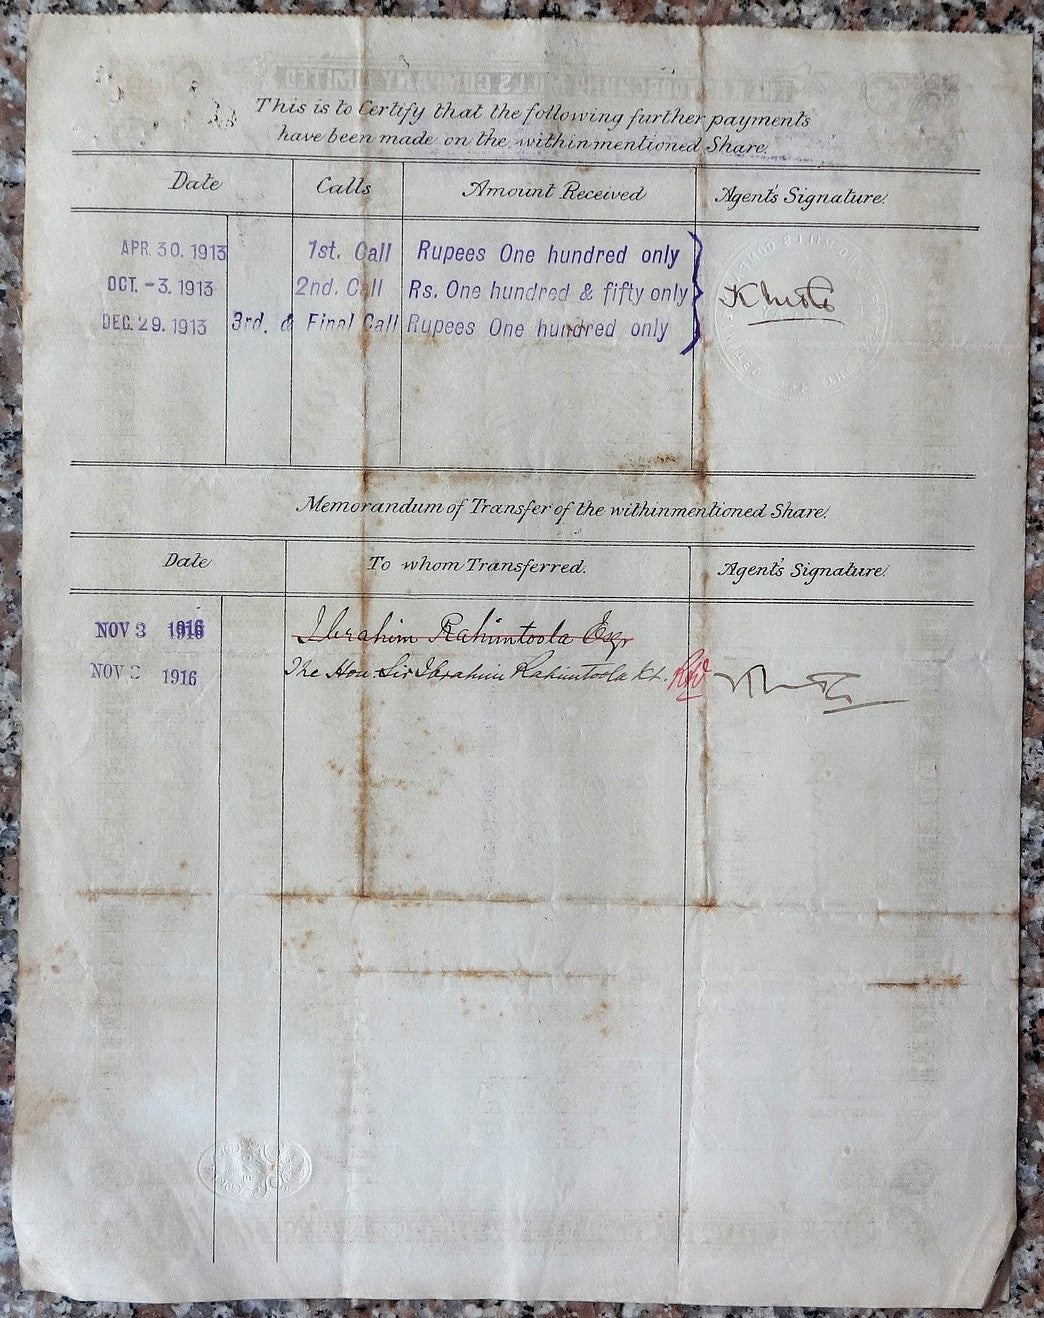 This is to Certify that the following further payments
have been made on the withinmentioned Share.
Date Calls Amount Received Agent's Signature.
APR. 30. 1913 1st. Call Rupees One hundred only
OCT. -3. 1913 2nd. Call Rs. One hundred & fifty only
DEC. 29. 1913 3rd. & Final Call Rupees One hundred only
Memorandum of Transfer of the withinmentioned Share.
Date To whom Transferred. Agent's Signature.
NOV 3 1916 Ibrahim Rahimtoola Esqr
NOV 3 1916 The Hon. Sir Ibrahim Rahimtoola Kt.